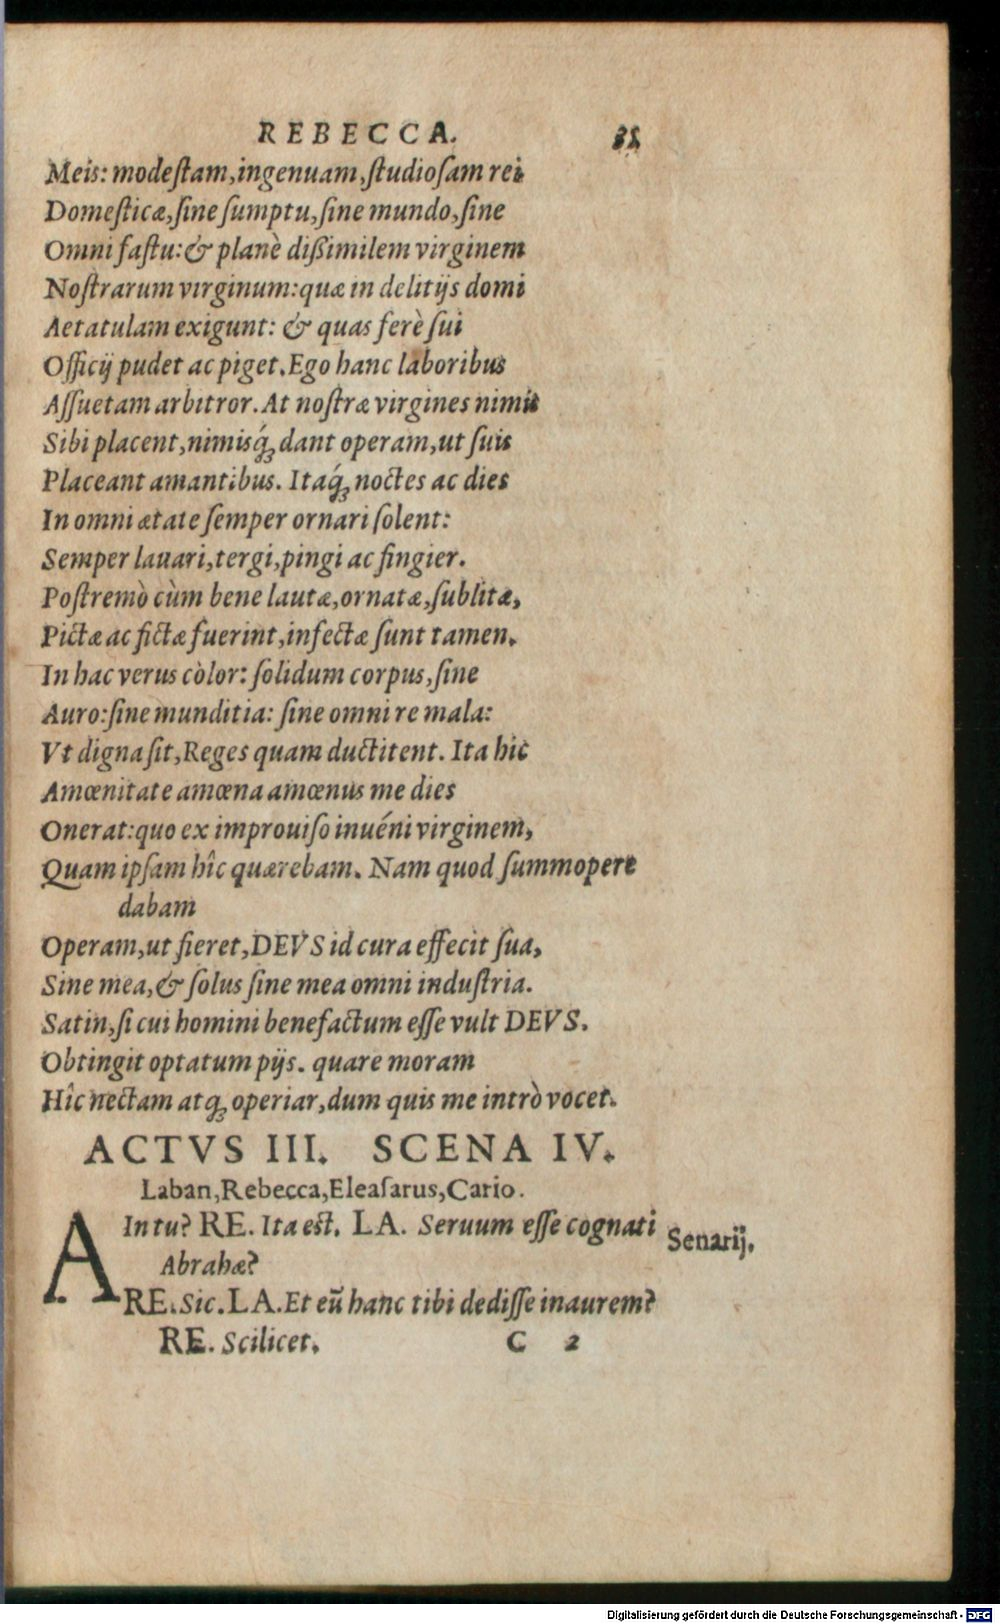 REBECCA.
Meis: modeſtam, ingenuam, ſtudioſam rei
Domeſticæ, ſine ſumptu, ſine mundo, ſine
Omni faſtu: & planè dißimilem virginem
Noſtrarum virginum: quæ in delitijs domi
Aetatulam exigunt: & quas ferè ſui
Officij pudet ac piget. Ego hanc laboribus
Aſſuetam arbitror. At noſtræ virgines nimis
Sibi placent, nimisq́ꝫ dant operam, ut ſuis
Placeant amantibus. Itaq́ꝫ noctes ac dies
In omni ætate ſemper ornari ſolent:
Semper lauari, tergi, pingi ac fingier.
Poſtremò cùm bene lautæ, ornatæ, ſublitæ,
Pictæ ac fictæ fuerint, infectæ ſunt tamen.
In hac verus còlor: ſolidum corpus, ſine
Auro: ſine munditia: ſine omni re mala:
Vt digna ſit, Reges quam ductitent. Ita hic
Amœnitate amœna amœnus me dies
Onerat: quo ex improuiſo inuéni virginem,
Quam ipſam hîc quærebam. Nam quod ſummopere
dabam
Operam, ut fieret, DEVS id cura effecit ſua,
Sine mea, & ſolus ſine mea omni induſtria.
Satin, ſi cui homini benefactum eſſe vult DEVS.
Obtingit optatum pijs. quare moram
Hîc nectam atqꝫ operiar, dum quis me intrò vocet.
ACTVS III. SCENA IV.
Laban, Rebecca, Eleaſarus, Cario.
AIn tu? RE. Ita eſt. LA. Seruum eſſe cognati Senarij.
Abrahæ?
RE. Sic. LA. Et eũ hanc tibi dediſſe inaurem?
RE. Scilicet. C 2
Digitalisierung gefördert durch die Deutsche Forschungsgemeinschaft - DFG